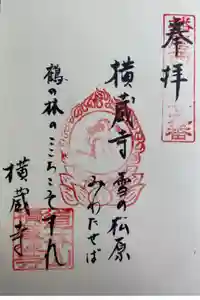 奉拝
横蔵寺 雪の松原
みわたせば
鶴の林のこころこそすれ
横蔵寺